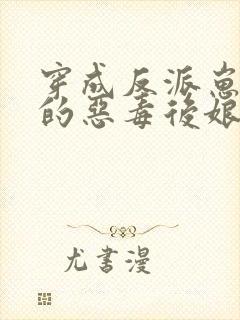 穿成反派崽
的惡毒後娘
尤書漫